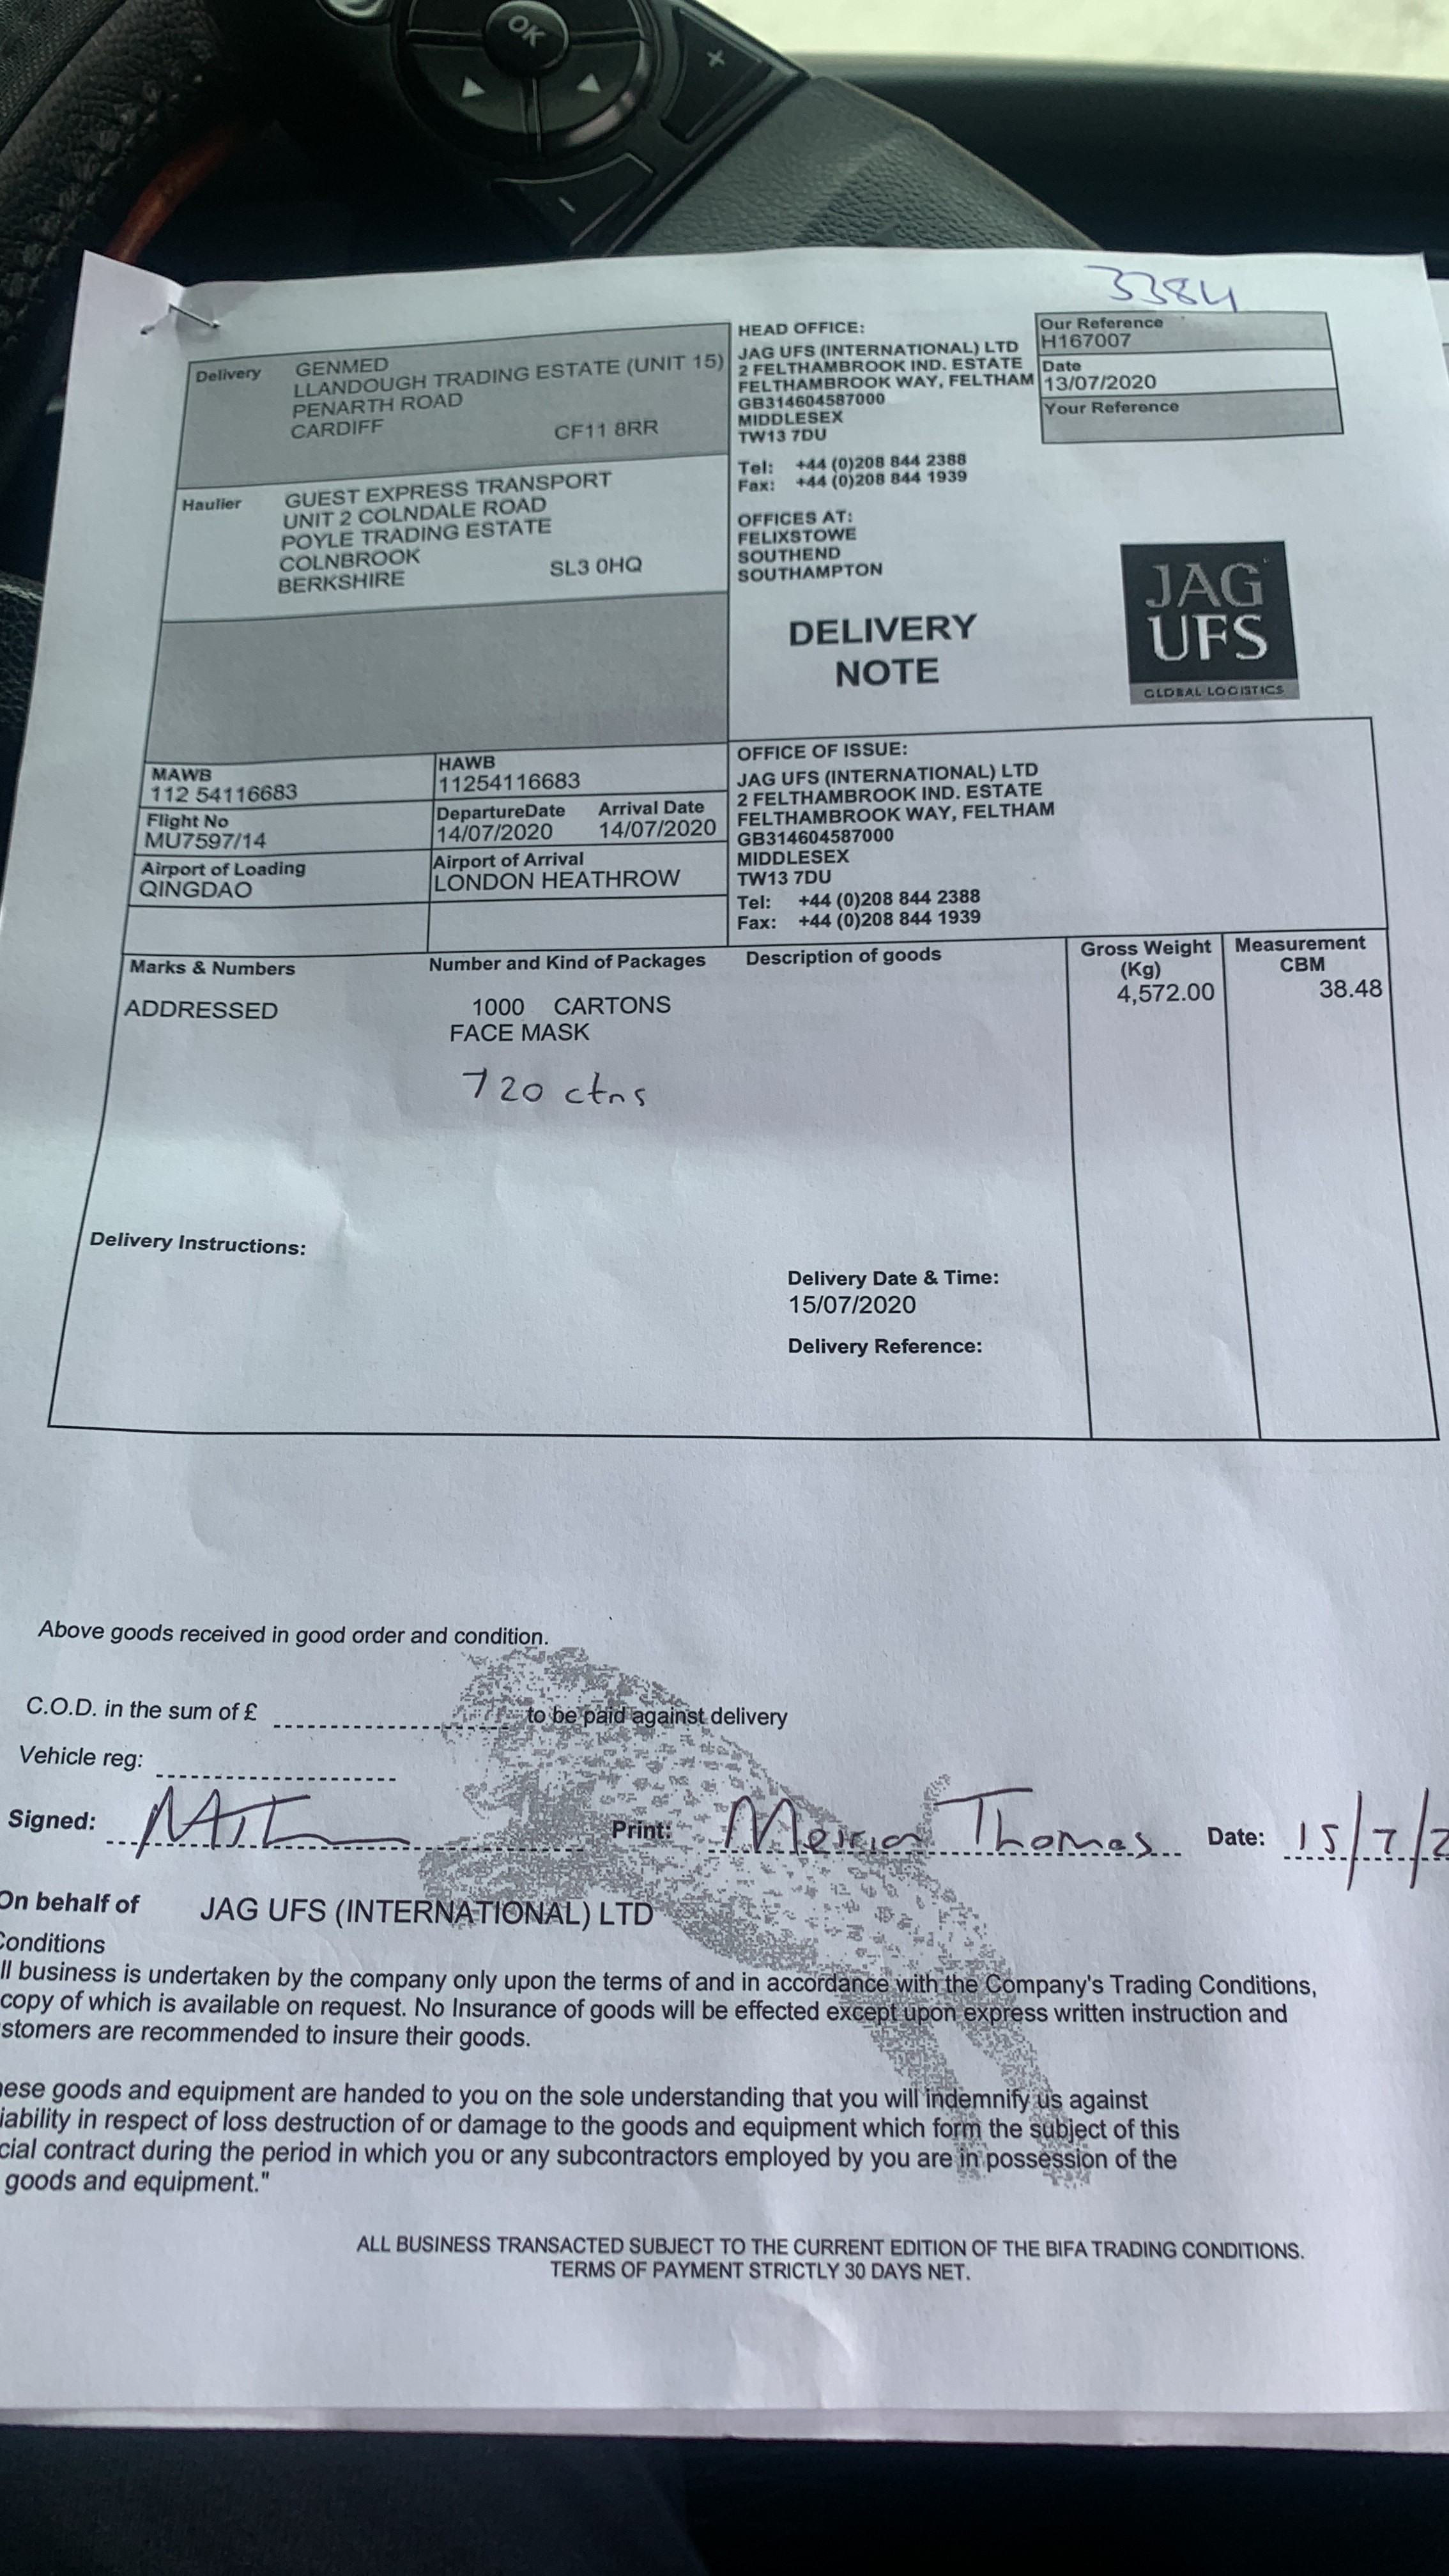 OK
+
-
3384
Delivery
GENMED
LLANDOUGH TRADING ESTATE (UNIT 15)
PENARTH ROAD
CARDIFF CF11 8RR
Haulier
GUEST EXPRESS TRANSPORT
UNIT 2 COLNDALE ROAD
POYLE TRADING ESTATE
COLNBROOK
BERKSHIRE SL3 0HQ
HEAD OFFICE:
JAG UFS (INTERNATIONAL) LTD
2 FELTHAMBROOK IND. ESTATE
FELTHAMBROOK WAY, FELTHAM
GB314604587000
MIDDLESEX
TW13 7DU
Tel: +44 (0)208 844 2388
Fax: +44 (0)208 844 1939
OFFICES AT:
FELIXSTOWE
SOUTHEND
SOUTHAMPTON
Our Reference
H167007
Date
13/07/2020
Your Reference
DELIVERY
NOTE
JAG
UFS
GLOBAL LOGISTICS
MAWB
112 54116683
HAWB
11254116683
Flight No
MU7597/14
DepartureDate Arrival Date
14/07/2020 14/07/2020
Airport of Loading
QINGDAO
Airport of Arrival
LONDON HEATHROW
OFFICE OF ISSUE:
JAG UFS (INTERNATIONAL) LTD
2 FELTHAMBROOK IND. ESTATE
FELTHAMBROOK WAY, FELTHAM
GB314604587000
MIDDLESEX
TW13 7DU
Tel: +44 (0)208 844 2388
Fax: +44 (0)208 844 1939
Marks & Numbers
ADDRESSED
Number and Kind of Packages
1000 CARTONS
FACE MASK
720 ctns
Description of goods
Gross Weight
(Kg)
4,572.00
Measurement
CBM
38.48
Delivery Instructions:
Delivery Date & Time:
15/07/2020
Delivery Reference:
Above goods received in good order and condition.
C.O.D. in the sum of £ to be paid against delivery
Vehicle reg:
Signed: Print: Thomas Date: 15/7/2
On behalf of JAG UFS (INTERNATIONAL) LTD
Conditions
ll business is undertaken by the company only upon the terms of and in accordance with the Company's Trading Conditions,
copy of which is available on request. No Insurance of goods will be effected except upon express written instruction and
stomers are recommended to insure their goods.
ese goods and equipment are handed to you on the sole understanding that you will indemnify us against
iability in respect of loss destruction of or damage to the goods and equipment which form the subject of this
cial contract during the period in which you or any subcontractors employed by you are in possession of the
goods and equipment."
ALL BUSINESS TRANSACTED SUBJECT TO THE CURRENT EDITION OF THE BIFA TRADING CONDITIONS.
TERMS OF PAYMENT STRICTLY 30 DAYS NET.